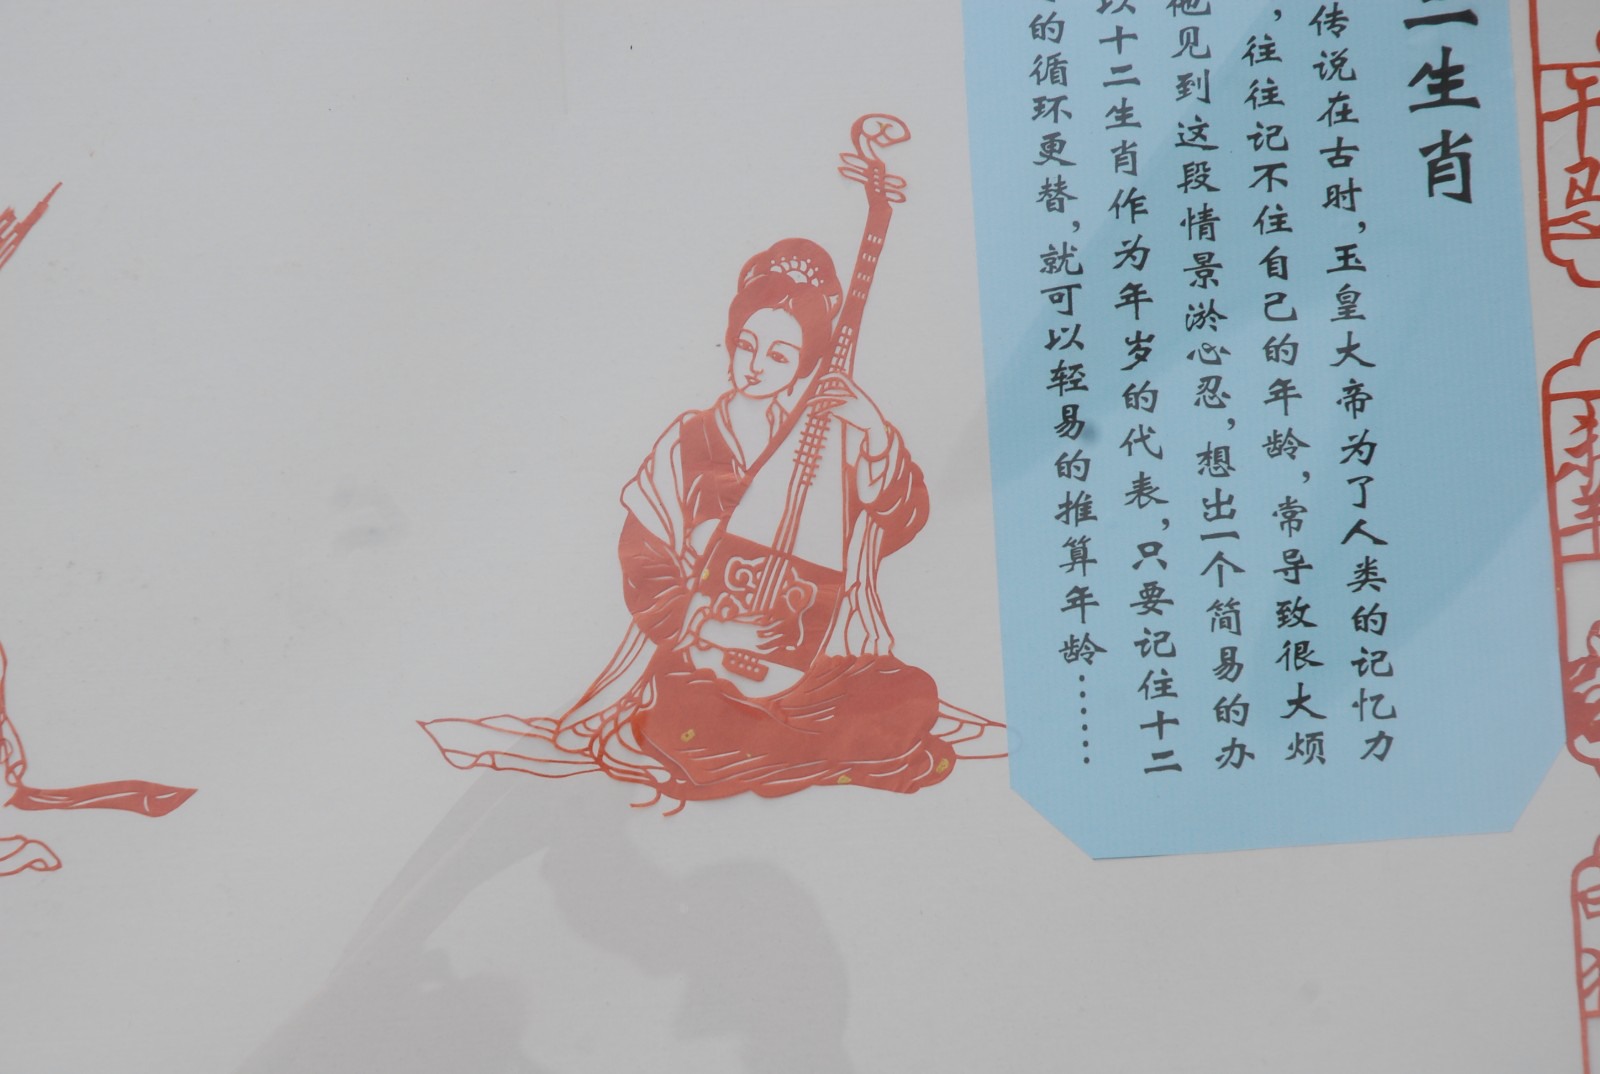 二生肖
传说在古时，玉皇大帝为了人类的记忆力
，往往记不住自己的年龄，常导致很大烦
他见到这段情景淤心忍，想出一个简易的办
以十二生肖作为年岁的代表，只要记住十二
的循环更替，就可以轻易的推算年龄……
午马